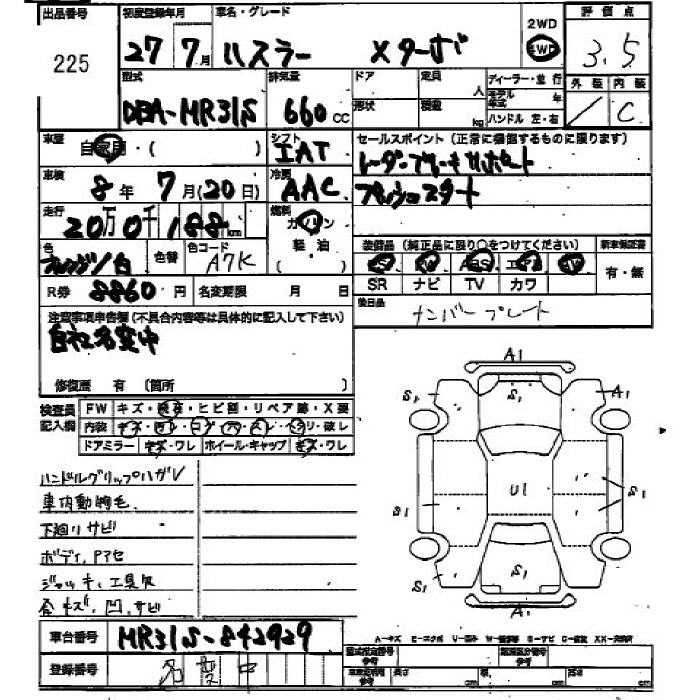 出品番号 初度登録年月 車名・グレード 2WD 評価点
225 27 7月 ハスラー Xターボ 4WD 3.5
型式 排気量 ドア 定員 人 ディーラー・並行 外装 内装
DBA-MR31S 660cc 形状 積載 kg モデル年式 年 / C
ハンドル 左・右
車歴 自家用・( ) シフト IAT セールスポイント(正常に機能するものに限ります)
車検 8年 7月(20日) 冷房 AAC レーダーブレーキサポート
プッシュスタート
走行 20万0千188km 燃料 ガソリン
軽・油
( )
色 オレンジ/白 色替 色コード A7K
装備品(純正品に限り○をつけてください) 新車保証書
SR ナビ TV カワ 有・無
R券 8860円 名変期限 月 日
後日品 ナンバープレート
注意事項申告欄(不具合内容等は具体的に記入して下さい)
自社名変中
修復歴 有 〔箇所
検査員記入欄 FW キズ・ ・ヒビ割・リペア跡・X要
内装 キズ
ドアミラー キズ・ワレ ホイール・キャップ キズ・ワレ
ハンドルグリップハガレ
車内動物毛
下廻りサビ
ボディ、アアセ
ジャッキ、工具欠
各キズ、凹、サビ
A1
S1 S1 A1
U1 S1
S1
S1 S1
A1
車台番号 MR31S-842929
登録番号 名変中
A-キズ
長さ cm 幅 cm 高さ cm